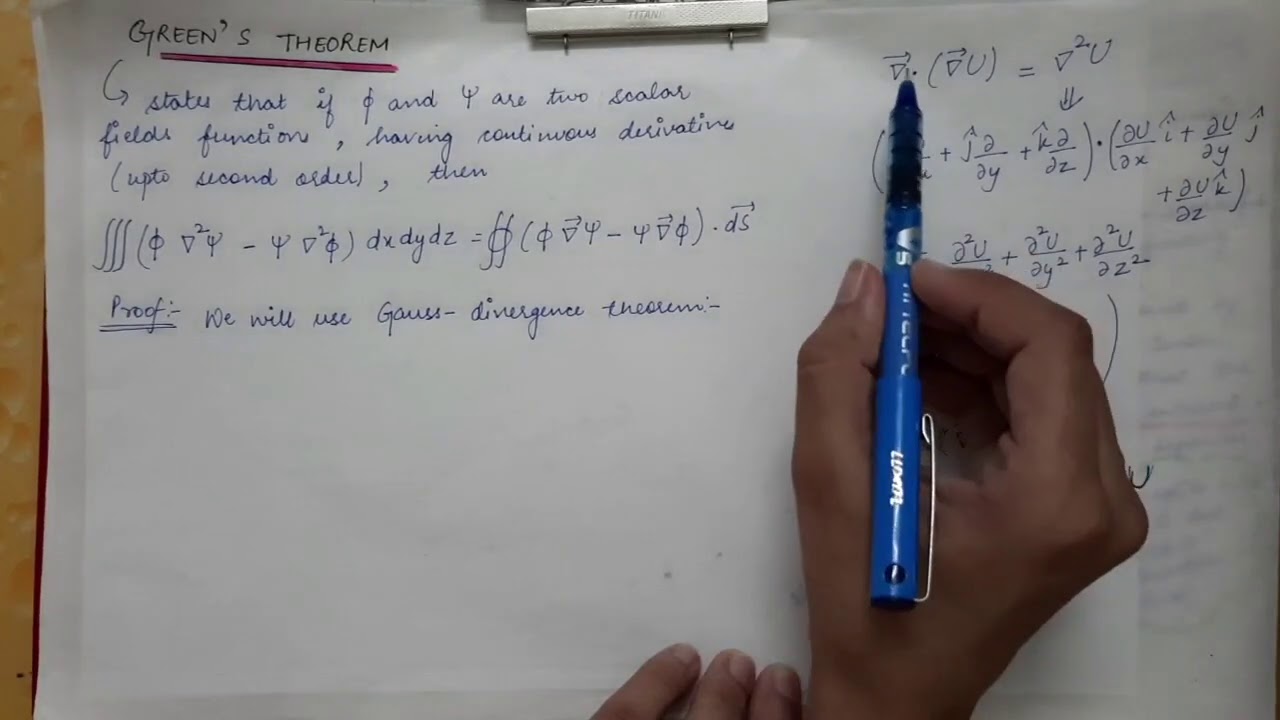 TITANI
GREEN'S THEOREM
↳ states that if ϕ and ψ are two scalar
fields function, having continuous derivatives
(upto second order), then
∭(ϕ ∇²ψ - ψ ∇²ϕ) dxdydz = ∯(ϕ ∇⃗ψ - ψ ∇⃗ϕ) · dS⃗
Proof:- We will use Gauss-divergence theorem:-
∇⃗·(∇⃗U) = ∇²U
⇓
+ ĵ ∂/∂y + k̂ ∂/∂z)·(∂U/∂x î + ∂U/∂y ĵ
+ ∂U/∂z k̂)
∂²U + ∂²U/∂y² + ∂²U/∂z²
V5
HI-TECPO
Luxor
U